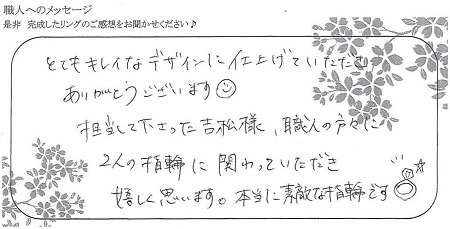 職人へのメッセージ
是非 完成したリングのご感想をお聞かせください♪
とてもキレイなデザインに仕上げていただき
ありがとうございます
担当して下さった吉松様、職人の方々に
2人の指輪に関わっていただき
嬉しく思います。本当に素敵な指輪です